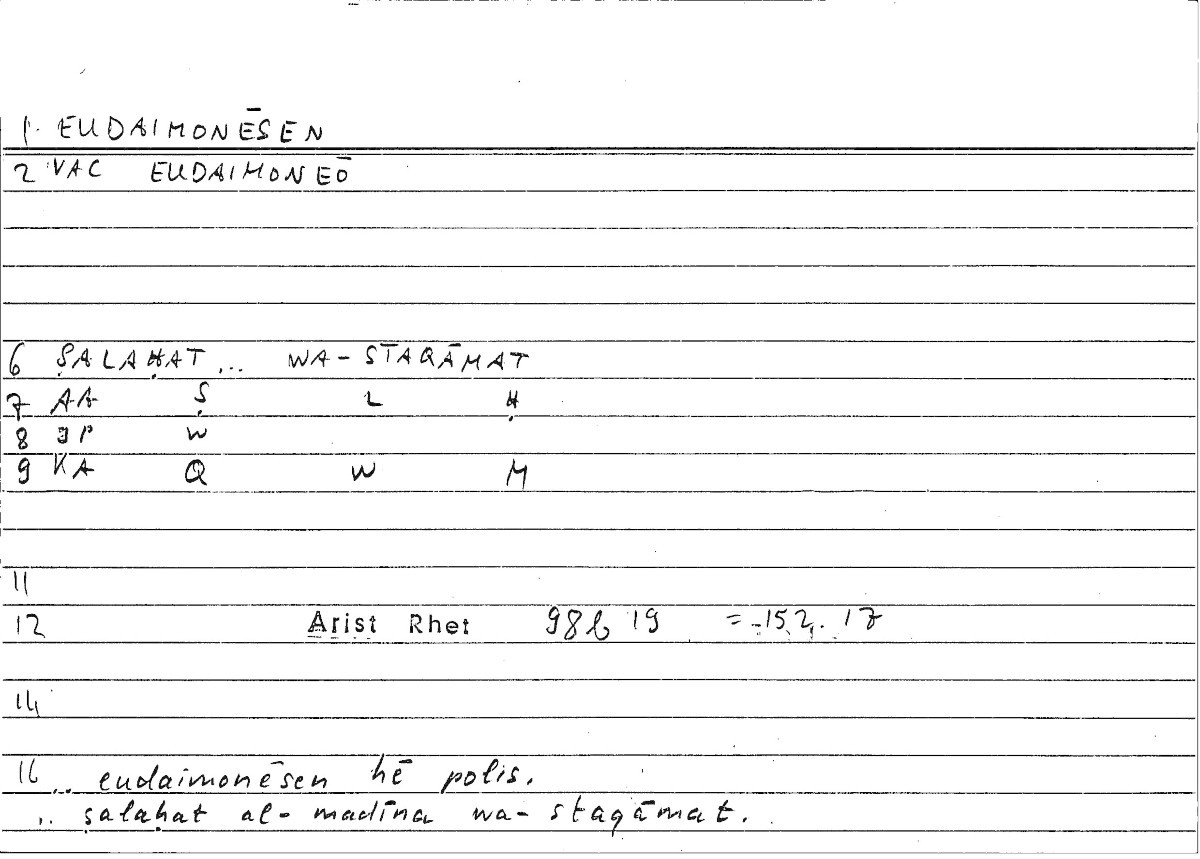 1. EUDAIMONĒSEN
2 VAC EUDAIMONEŌ
6 ṢALAḤAT ... WA-STAQĀMAT
7 AA Ṣ L Ḥ
8 JP W
9 KA Q W M
11
12 Arist Rhet 98b 19 = 152, 17
14
16 .. eudaimonēsen hē polis.
.. ṣalaḥat al-madīna wa-staqāmat.